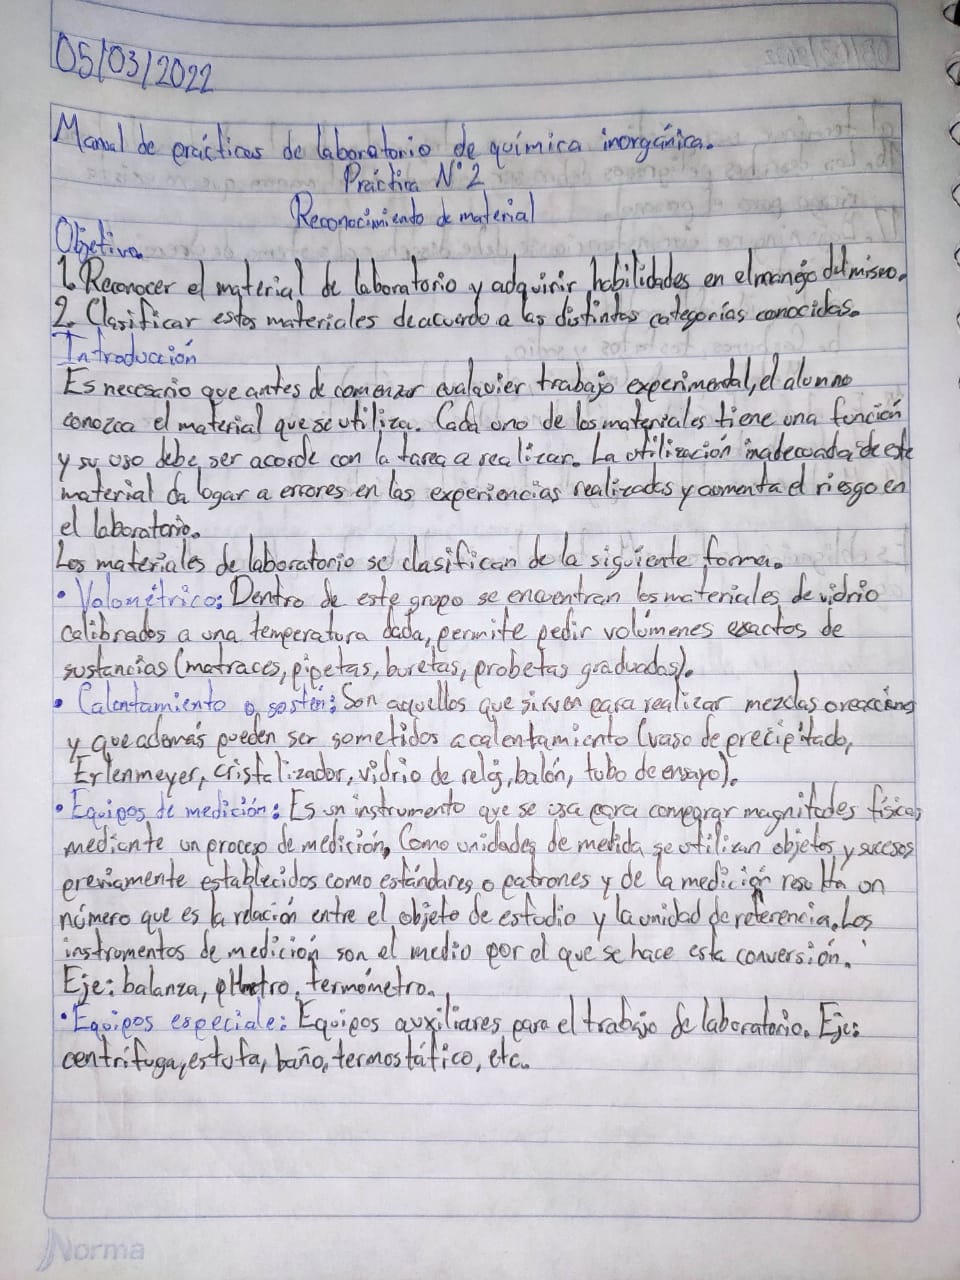 05/03/2022
Manual de prácticas de laboratorio de química inorgánica.
Práctica N°2
Reconocimiento de material
Objetivo.
1. Reconocer el material de laboratorio y adquirir habilidades en el manejo del mismo.
2. Clasificar estos materiales de acuerdo a las distintas categorías conocidas.
Introducción
Es necesario que antes de comenzar cualquier trabajo experimental, el alumno
conozca el material que se utiliza. Cada uno de los materiales tiene una función
y su uso debe ser acorde con la tarea a realizar. La utilización inadecuada de este
material da logar a errores en las experiencias realizadas y aumenta el riesgo en
el laboratorio.
Los materiales de laboratorio se clasifican de la siguiente forma.
• Volumétrico: Dentro de este grupo se encuentran los materiales de vidrio
calibrados a una temperatura dada, permite pedir volúmenes exactos de
sustancias (matraces, pipetas, buretas, probetas graduadas).
• Calentamiento o sostén: Son aquellos que sirven para realizar mezclas o reacciones
y que además pueden ser sometidos a calentamiento (vaso de precipitado,
Erlenmeyer, cristalizador, vidrio de reloj, balón, tubo de ensayo).
• Equipos de medición: Es un instrumento que se usa para comparar magnitudes físicas
mediante un proceso de medición, Como unidades de medida se utilizan objetos y sucesos
previamente establecidos como estándares o patrones y de la medición resulta un
número que es la relación entre el objeto de estudio y la unidad de referencia. Los
instrumentos de medición son el medio por el que se hace esta conversión.
Eje: balanza, termómetro.
• Equipos especiale: Equipos auxiliares para el trabajo de laboratorio. Eje:
centrifuga, estufa, baño, termostático, etc.
Norma